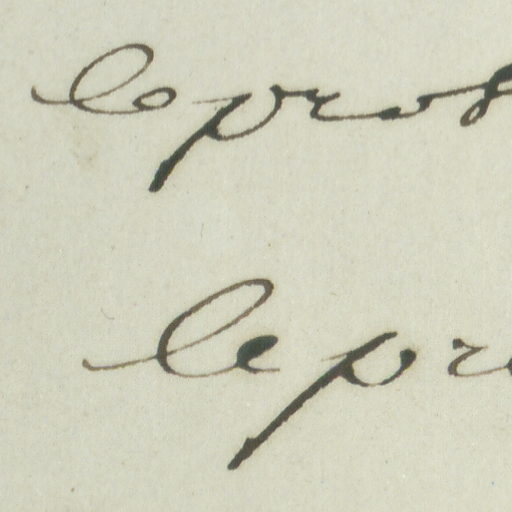 lepros
lepr